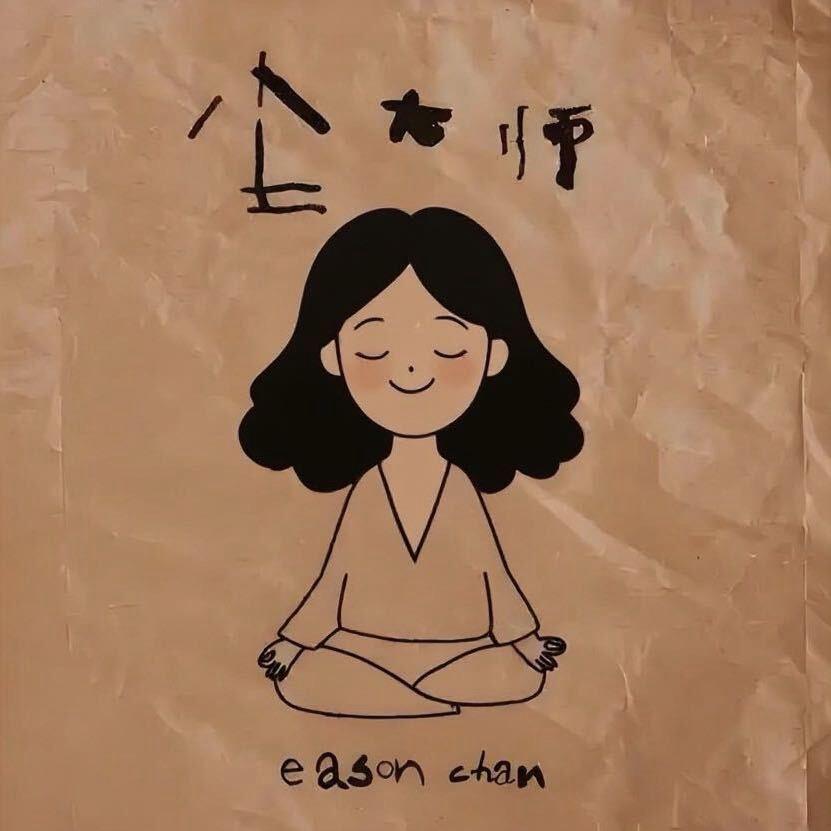 尘大师
eason chan